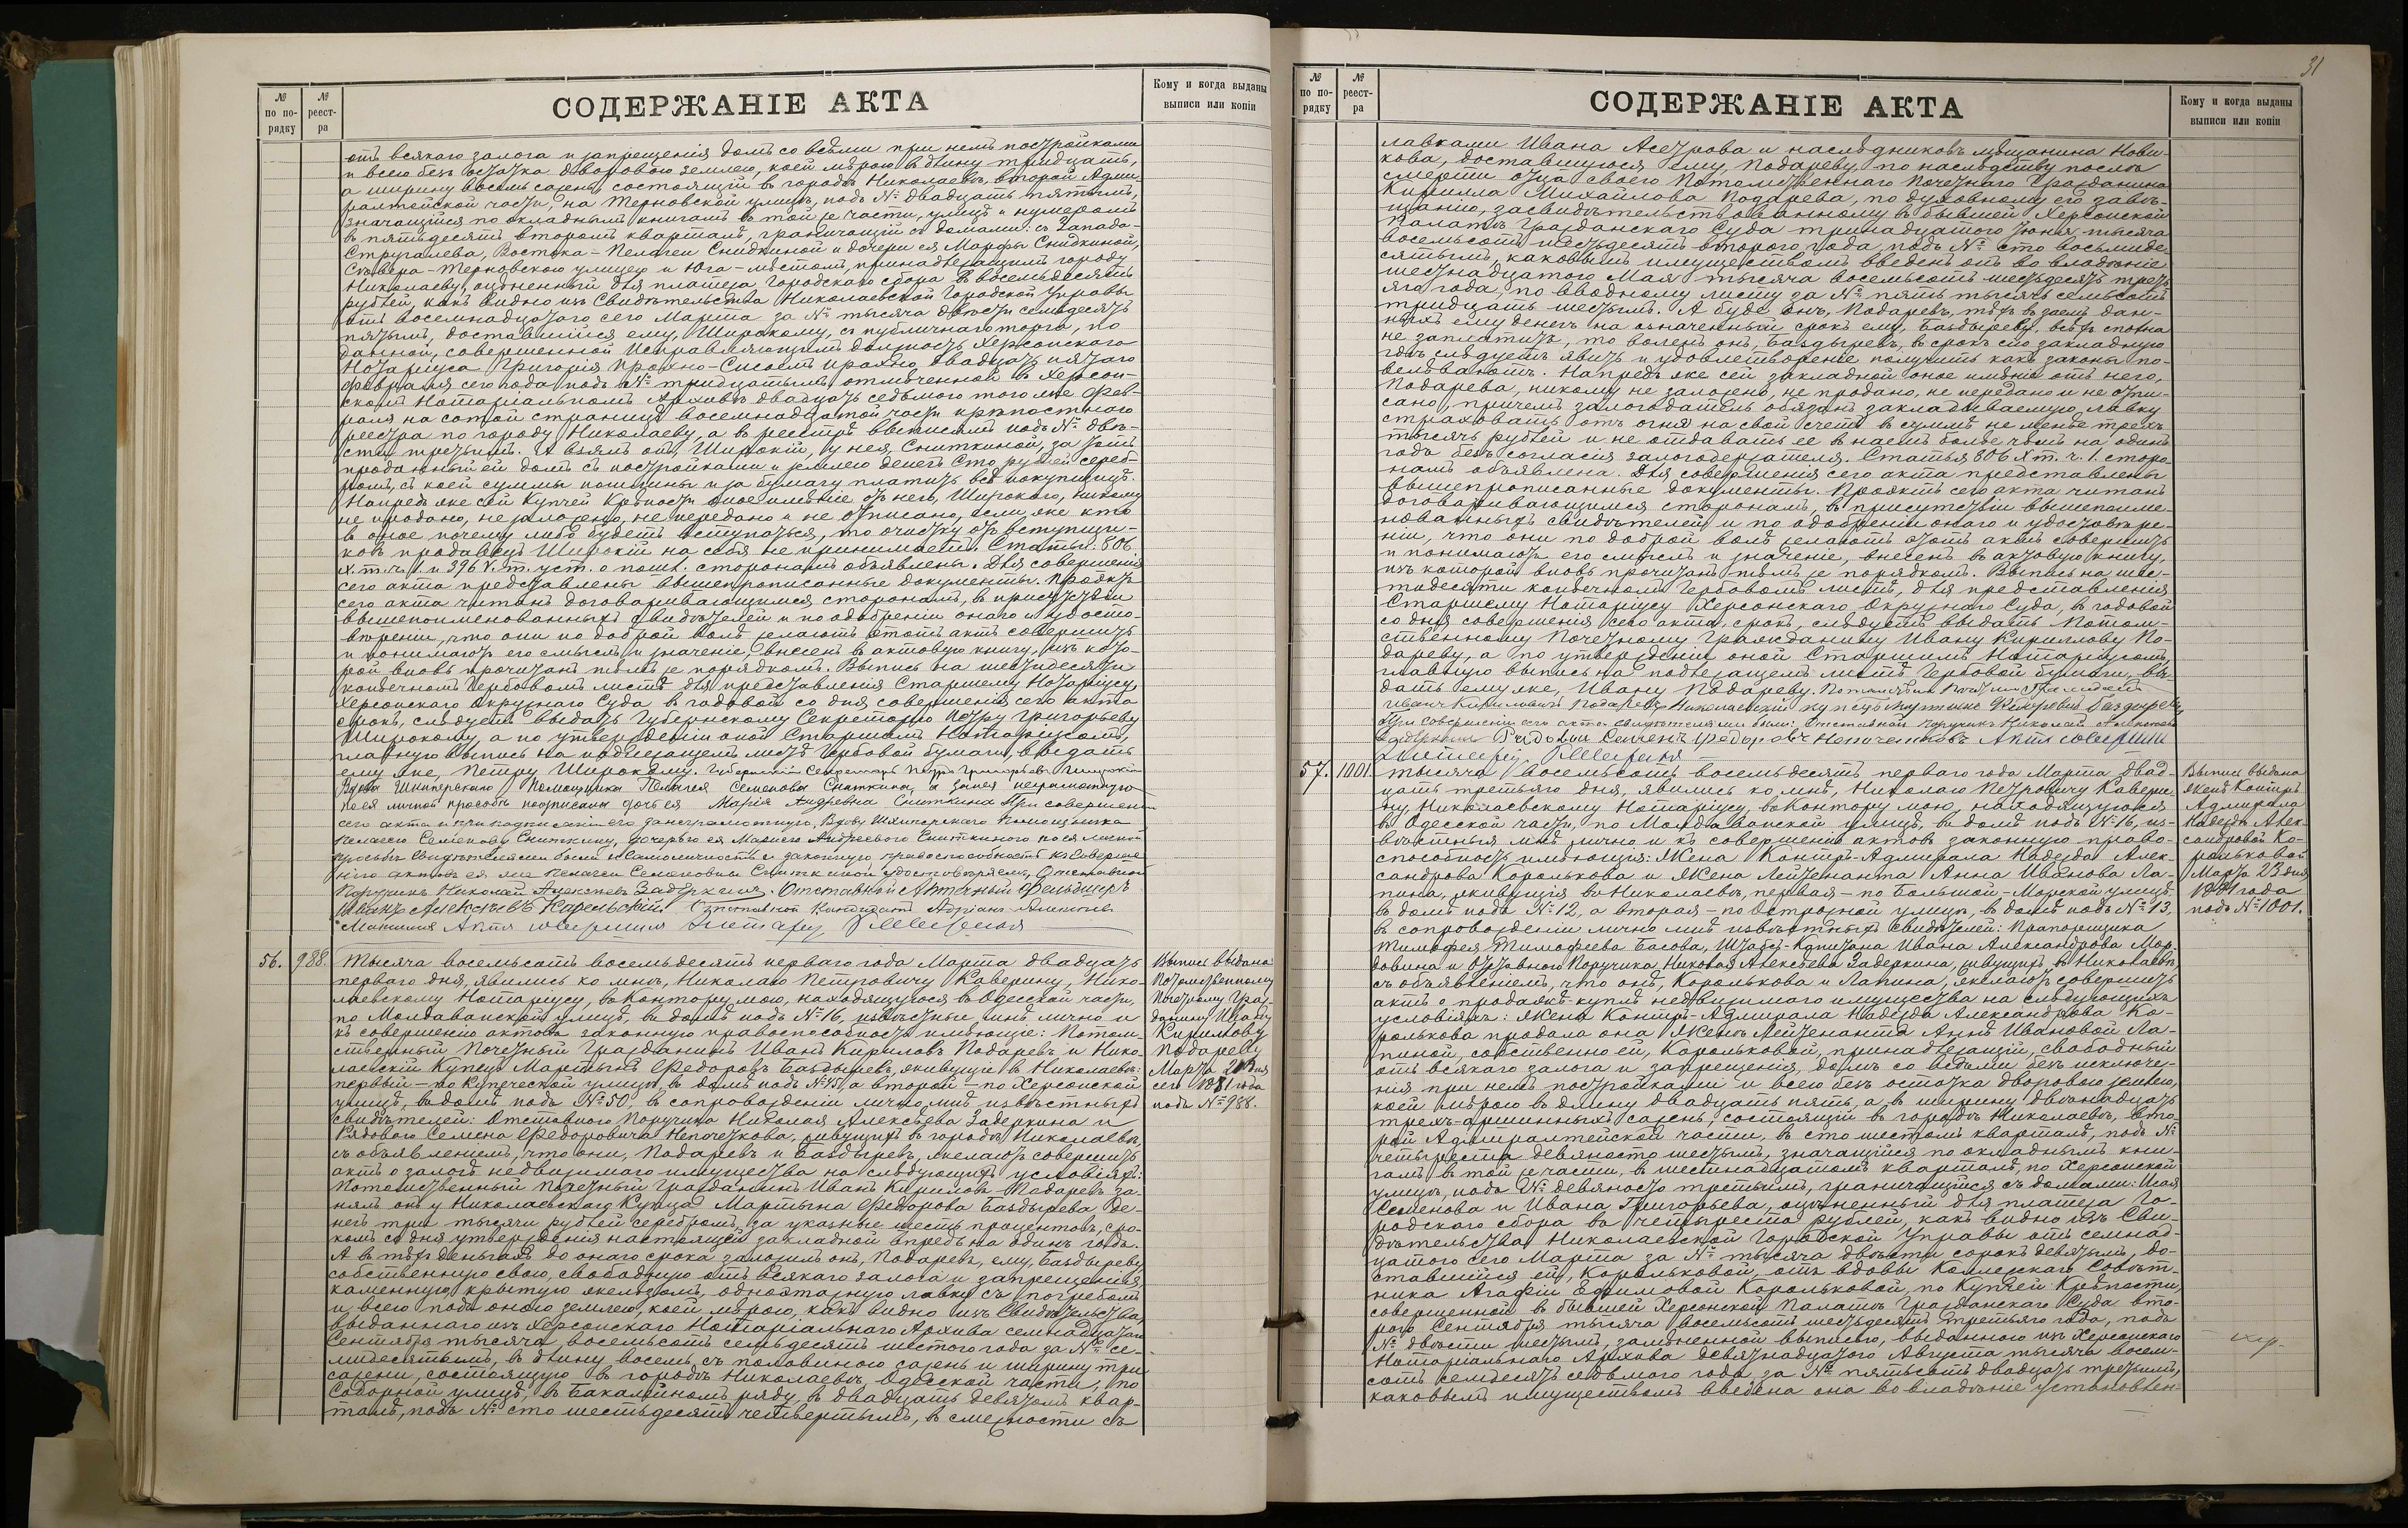 31
№
по по-
рядку
№
реест-
ра
СОДЕРЖАНІЕ АКТА
Кому и когда выданы
выписи или копіи
отъ всякаго залога и запрещенія домъ со всѣми при немъ постройками
и всею безъ остатка дворовою землею, коей мѣрою въ длину тридцать,
а ширину восемь сажень, состоящій въ городѣ Николаевѣ, второй Адми-
ралтейской части, на Терновской улицѣ, подъ № двадцать пятымъ,
значащійся по окладнымъ книгамъ въ той же части, улицѣ и нумеромъ
въ пятьдесятъ второмъ кварталѣ, граничащій съ домами: съ Запада-
Стругалева, Востока-Пелагеи Снидкиной и дочери ея Марфы Снидкиной,
Сѣвера-Терновскою улицею и Юга-мѣстомъ, принадлежащимъ городу
Николаеву, оцѣненный для платежа Городскаго сбора въ восемьдесятъ
рублей, какъ видно изъ Свидѣтельства Николаевской Городской Управы
отъ восемнадцатаго сего Марта за № тысяча двѣсти семьдесятъ
пятымъ, доставшійся ему, Широкому, съ публичнаго торга, по
данной, совершенной Исправляющимъ должность Херсонскаго
Нотаріуса Григорія Прохно-Сисоемъ Прохно, двадцать пятаго
Февраля сего года подъ № тридцатымъ, отмѣченной въ Херсон-
скомъ Нотаріальномъ Архивѣ двадцать седьмого того же Фев-
раля на сотой страницѣ восемнадцатой части крѣпостного
реестра по городу Николаеву, а въ реестрѣ выписямъ подъ № двѣ-
сти третьимъ. А взялъ онъ, Широкій, у нея, Сниткиной, за этотъ
проданный ей домъ съ постройками и землею денегъ Сто рублей сереб-
ромъ, съ коей суммы пошлины и за бумагу платитъ всѣ покупщица.
Напредъ же сей Купчей Крѣпости оное имѣніе отъ него, Широкаго, никому
не продано, не заложено, не передано и не описано, если же кто
въ оное почему либо будетъ вступаться, то очистку отъ вступщи-
ковъ продавецъ Широкій на себя не принимаетъ. Статьи: 806
X.т.ч.1 и 396 V.т.уст. о пошл. сторонамъ объявлены. Для совершенія
сего акта представлены вышепрописанные документы. Проэктъ
сего акта читанъ договаривающимся сторонамъ, въ присутствіи
вышепоименованныхъ свидѣтелей и по одобреніи онаго и удосто-
вѣреніи, что они по доброй волѣ желаютъ этотъ актъ совершить
и понимаютъ его смыслъ и значеніе, внесенъ въ актовую книгу, изъ кото-
рой вновь прочитанъ тѣмъ же порядкомъ. Выпись на шестидесяти
копѣечномъ Гербовомъ листѣ для представленія Старшему Нотаріусу
Херсонскаго Окружнаго Суда въ годовой со дня совершенія сего акта
срокъ, слѣдуетъ выдать Губернскому Секретарю Петру Григорьеву
Широкому, а по утвержденіи оной Старшимъ Нотаріусомъ,
главную выпись на подлежащемъ листѣ Гербовой бумаги, выдать
ему же, Петру Широкому. Губернскій Секретарь Петръ Григорьевъ Широкій
Вдова Шкиперскаго Помощника Пелагея Семенова Сниткина, а за нея неграмотную
по ея личной просьбѣ подписалась дочь ея Марія Андреевна Сниткина При совершеніи
сего акта и при подписаніи его за неграмотную, Вдову Шкиперскаго Помощника
Пелагею Семенову Сниткину, дочерью ея Маріею Андреевою Сниткиною по ея личной
просьбѣ Свидѣтелями были и самоличность и законную правоспособность къ соверше-
нію актовъ ея же Пелагеи Семеновны Сниткиной удостовѣряемъ, Отставной
Поручикъ Николай Алексѣевъ Задеркинъ. Отставной Аптечный Фельдшеръ
Иванъ Алексѣевъ Карельскій. Отставной Кандидатъ Адріанъ Алексѣевъ
Актъ совершилъ Нотаріусъ
56. 988. Тысяча восемьсотъ восемьдесятъ перваго года Марта двадцать
перваго дня, явились ко мнѣ, Николаю Петровичу Каверину, Нико-
лаевскому Нотаріусу, въ Контору мою, находящуюся въ Одесской части,
по Молдаванской улицѣ, въ домѣ подъ №16, извѣстные мнѣ лично и
къ совершенію актовъ законную правоспособность имѣющіе: Потом-
ственный Почетный Гражданинъ Иванъ Кириловъ Подаревъ и Нико-
лаевскій Купецъ Мартынъ Федоровъ Баздыревъ, живущіе въ Николаевѣ:
первый-по Купеческой улицѣ, въ домѣ подъ №45, а второй-по Херсонской
улицѣ, въ домѣ подъ №50, въ сопровожденіи лично мнѣ извѣстныхъ
свидѣтелей: Отставного Поручика Николая Алексѣева Задеркина и
Рядового Семена Федоровича Непочткова, живущихъ въ городѣ Николаевѣ,
съ объявленіемъ, что они, Подаревъ и Баздыревъ, желаютъ совершить
актъ о залогѣ недвижимаго имущества на слѣдующихъ условіяхъ:
Потомственный Почетный Гражданинъ Иванъ Кириловъ Подаревъ за-
нялъ онъ у Николаевскаго Купца Мартына Федорова Баздырева де-
негъ три тысячи рублей серебромъ, за указные шесть процентовъ, сро-
комъ со дня утвержденія настоящей закладной впредь на одинъ годъ.
А въ тѣхъ деньгахъ до онаго срока заложилъ онъ, Подаревъ, ему, Баздыреву
собственную свою, свободную отъ всякаго залога и запрещенія
каменную, крытую желѣзомъ, одноэтажную лавку съ погребомъ
и всею подъ оною землею, коей мѣрою, какъ видно изъ Свидѣтельства,
выданнаго изъ Херсонскаго Нотаріальнаго Архива семнадцатаго
Сентября тысяча восемьсотъ семьдесятъ шестого года за № се-
мидесятымъ, въ длину восемь съ половиною сажень и ширину три
сажени, состоящую въ городѣ Николаевѣ, Одесской части, по
Соборной улицѣ, въ Бакалейномъ ряду, въ двадцать девятомъ квар-
талѣ, подъ № сто шестьдесятъ четвертымъ, въ смежности съ
Выпись выдана
Потомственному
Почетному Граж-
данину Ивану
Кирилову
Подареву
Марта 21 дня
сего 1881 года
подъ №988.
№
по по-
рядку
№
реест-
ра
СОДЕРЖАНІЕ АКТА
Кому и когда выданы
выписи или копіи
лавками Ивана Асетрова и наслѣдниковъ мѣщанина Нови-
кова, доставшуюся ему, Подареву, по наслѣдству послѣ
смерти отца своего Потомственнаго Почетнаго Гражданина
Кирилла Михайлова Подарева, по духовному его завѣ-
щанію, засвидѣтельствованному въ бывшей Херсонской
Палатѣ Гражданскаго Суда тринадцатаго Іюня тысяча
восемьсотъ шестьдесятъ второго года, подъ № сто восьмиде-
сятымъ, каковымъ имуществомъ введенъ онъ во владѣніе
шестнадцатаго Мая тысяча восемьсотъ шестьдесятъ треть-
яго года, по вводному листу за № пять тысячъ семьсотъ
тридцать шестымъ. А буде онъ, Подаревъ, тѣхъ въ заемъ дан-
ныхъ ему денегъ на означенный срокъ ему, Баздыреву, всѣхъ сполна
не заплатитъ, то воленъ онъ, Баздыревъ, въ срокъ сію закладную
гдѣ слѣдуетъ явить и удовлетвореніе получить какъ законы по-
велѣваютъ. Напредъ же сей закладной оное имѣніе отъ него,
Подарева, никому не заложено, не продано, не передано и не опи-
сано, причемъ залогодатель обязанъ закладываемую лавку
страховать отъ огня на свой счетъ въ суммѣ не менѣе трехъ
тысячъ рублей и не отдавать ее въ наемъ болѣе, чѣмъ на одинъ
годъ безъ согласія залогодержателя. Статья 806 X т. ч. 1. сторо-
намъ объявлена. Для совершенія сего акта представлены
вышепрописанные документы. Проэктъ сего акта читанъ
договаривающимся сторонамъ, въ присутствіи вышепоиме-
нованныхъ свидѣтелей и по одобреніи онаго и удостовѣре-
ніи, что они по доброй волѣ желаютъ этотъ актъ совершить
и понимаютъ его смыслъ и значеніе, внесенъ въ актовую книгу,
изъ которой вновь прочитанъ тѣмъ же порядкомъ. Выпись на шес-
тидесяти копѣечномъ Гербовомъ листѣ, для представленія
Старшему Нотаріусу Херсонскаго Окружнаго Суда, въ годовой
со дня совершенія сего акта, срокъ, слѣдуетъ выдать Потом-
ственному Почетному Гражданину Ивану Кириллову По-
дареву, а по утвержденіи оной Старшимъ Нотаріусомъ,
главную выпись на подлежащемъ листѣ Гербовой бумаги, вы-
дать ему же, Ивану Подареву. Потомственный Почетный Гражданинъ
Иванъ Кириловичъ Подаревъ, Николаевскій купецъ Мартынъ Федоровъ Баздыревъ
При совершеніи сего акта свидѣтелями были: Отставной Поручикъ Николай Алексѣевъ
Задеркинъ Рядовой Семенъ Федоровъ Актъ совершилъ
Нотаріусъ
57. 1001. Тысяча восемьсотъ восемьдесятъ перваго года Марта двад-
цать третьяго дня, явились ко мнѣ, Николаю Петровичу Кавери-
ну, Николаевскому Нотаріусу, въ Контору мою, находящуюся
въ Одесской части, по Молдаванской улицѣ, въ домѣ подъ №16, из-
вѣстныя мнѣ лично и къ совершенію актовъ законную право-
способность имѣющія: Жена Контръ-Адмирала Надежда Алек-
сандрова Королькова и Жена Лейтенанта Анна Иванова Ла-
пина, живущія въ Николаевѣ, первая-по Большой-Морской улицѣ
въ домѣ подъ №12, а вторая-по Острожной улицѣ, въ домѣ подъ №13,
въ сопровожденіи лично мнѣ извѣстныхъ Свидѣтелей: Прапорщика
Тимофея Тимофеева Басова, Штабсъ-Капитана Ивана Александрова Мор-
довина и Отставного Поручика Николая Алексѣева Задеркина, живущихъ въ Николаевѣ,
съ объявленіемъ, что онѣ, Королькова и Лапина, желаютъ совершить
актъ о продажѣ-куплѣ недвижимаго имущества на слѣдующихъ
условіяхъ: Жена Контръ-Адмирала Надежда Александрова Ко-
ролькова продала она Женѣ Лейтенанта Аннѣ Ивановой Ла-
пиной, собственно ей, Корольковой, принадлежащій, свободный
отъ всякаго залога и запрещенія, домъ со всѣми безъ исключе-
нія при немъ постройками и всею безъ остатка дворовою землею,
коей мѣрою въ длину двадцать пять, а въ ширину двѣнадцать
трехъ-аршинныхъ сажень, состоящій въ городѣ Николаевѣ, вто-
рой Адмиралтейской части, въ сто шестомъ кварталѣ, подъ №
четыреста девяносто шестымъ, значащійся по окладнымъ кни-
гамъ въ той же части, въ шестнадцатомъ кварталѣ, по Херсонской
улицѣ, подъ № девяносто третьимъ, граничащійся съ домами: Исая
Семенова и Ивана Григорьева, оцѣненный для платежа Го-
родскаго сбора въ четыреста рублей, какъ видно изъ Сви-
дѣтельства Николаевской Городской Управы отъ семнад-
цатаго сего Марта за № тысяча двѣсти сорокъ девятымъ, до-
ставшійся ей, Корольковой, отъ вдовы Коллежскаго Совѣт-
ника Агафіи Ефимовой Корольковой, по Купчей Крѣпости,
совершенной въ бывшей Херсонской Палатѣ Гражданскаго Суда вто-
рого Сентября тысяча восемьсотъ шестьдесятъ третьяго года, подъ
№ двѣсти шестымъ, замѣненной выписью, выданною изъ Херсонскаго
Нотаріальнаго Архива девятнадцатаго Августа тысяча восемь-
сотъ семьдесятъ седьмого года за № пятьсотъ двадцать третьимъ,
каковымъ имуществомъ введена она во владѣніе установлен-
Выпись выдана
Женѣ Контръ
Адмирала
Надеждѣ Алек-
сандровой Ко-
рольковой
Марта 23 дня
1881 года
подъ №1001.